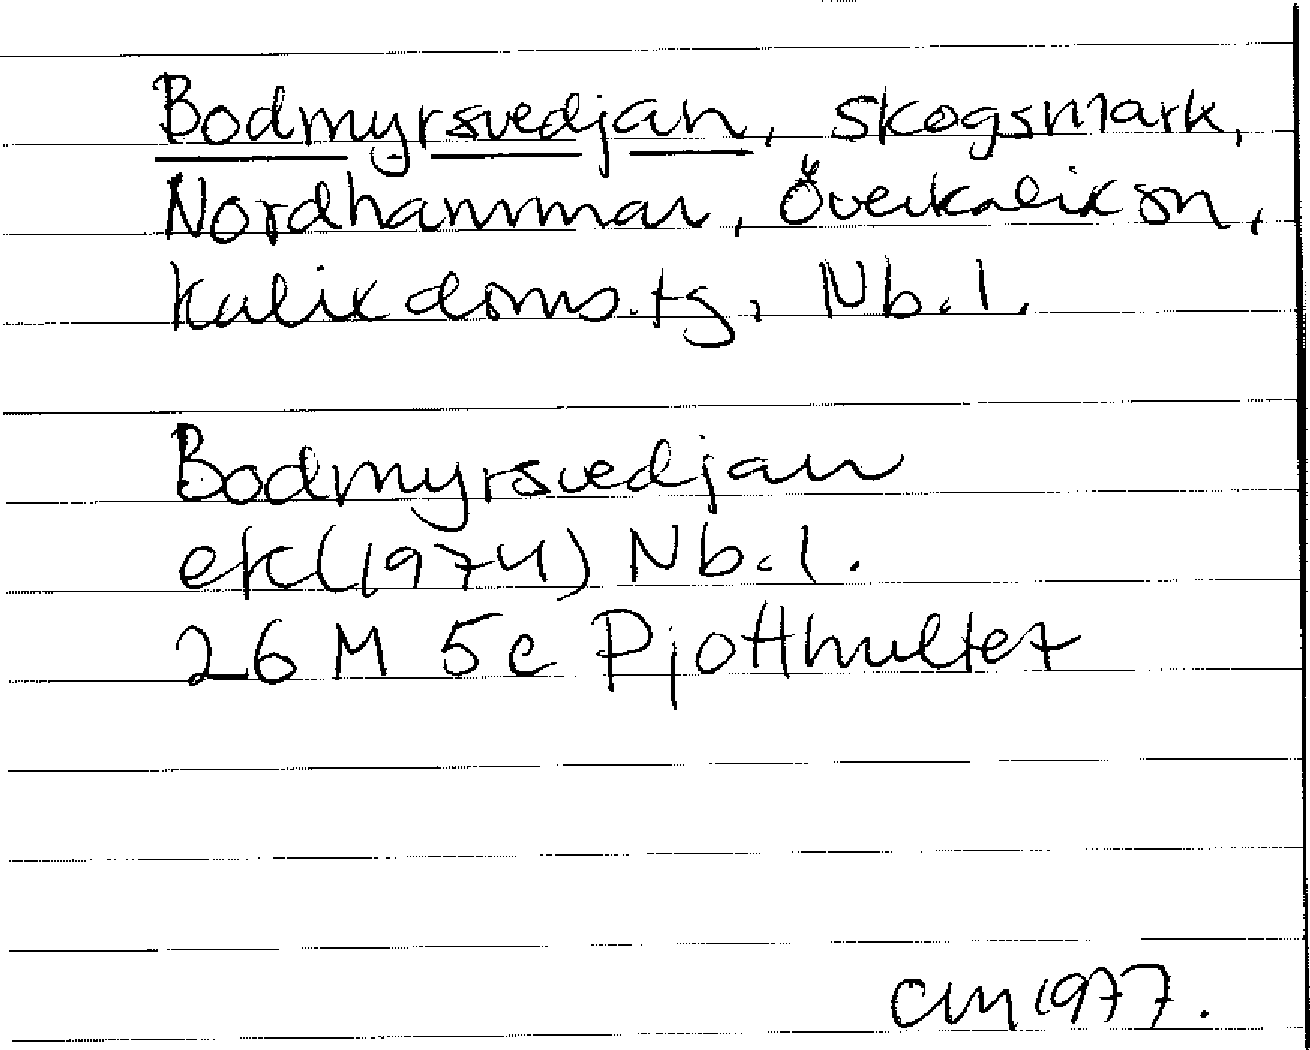 Bodmyrsvedjan, skogsmark,
Nordhammar, Överkalix sn,
Kalix doms.tg, Nb.l.
Bodmyrsvedjan
ek (1974) Nb.l.
26 M 5c Pjotthultet
CM 1977.